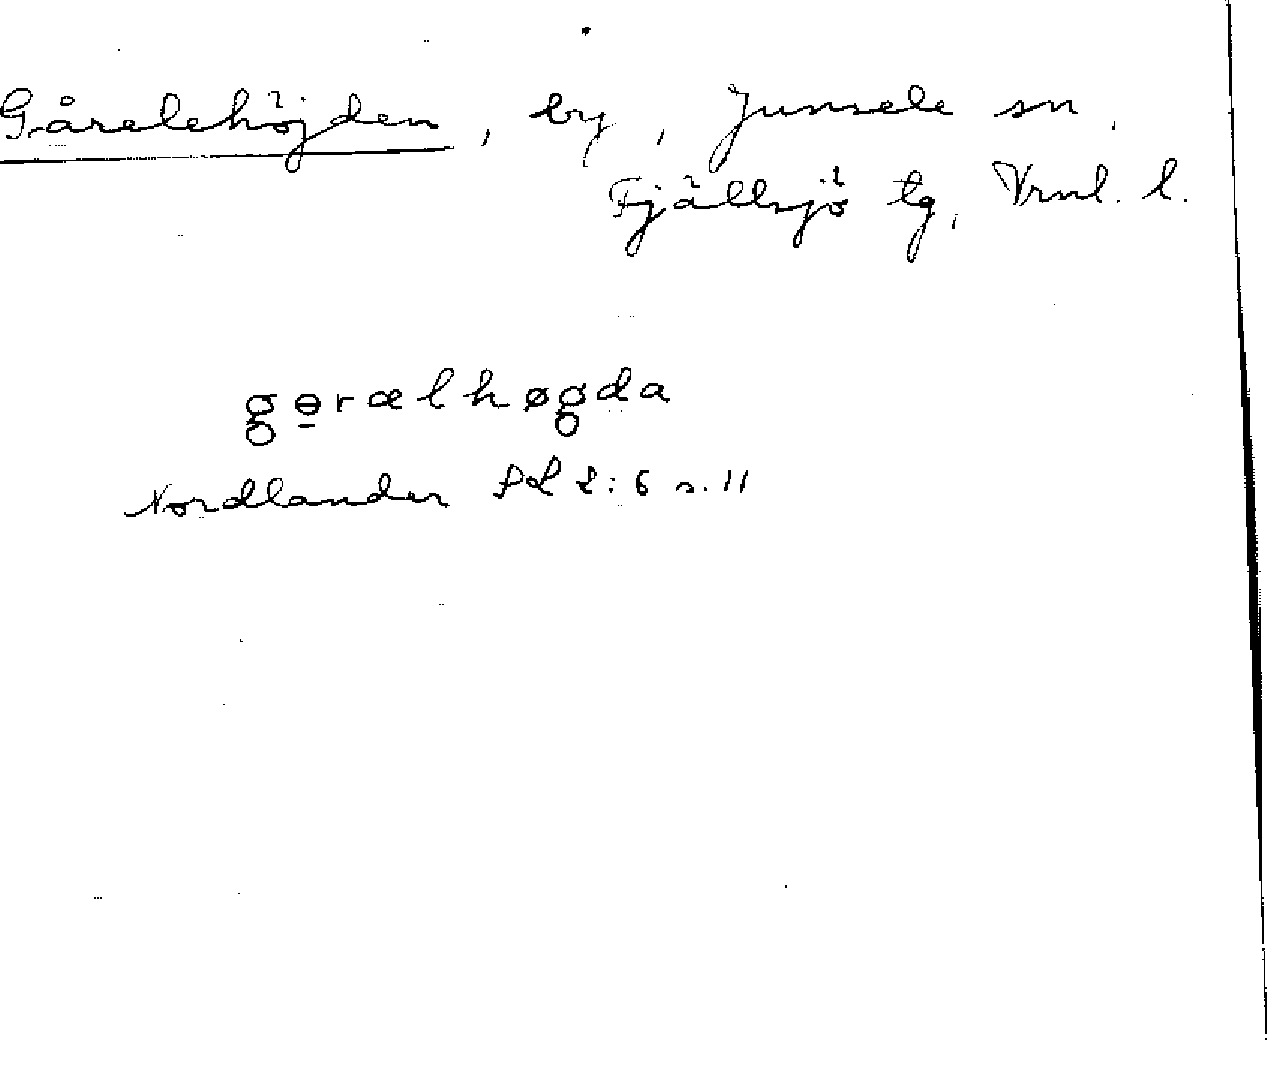 Gårelehöjden, by, Junsele sn,
Fjällsjö tg, Vrnl. l.
gɵ̠rælhøgda
Nordlander SL 2:6 s. 11